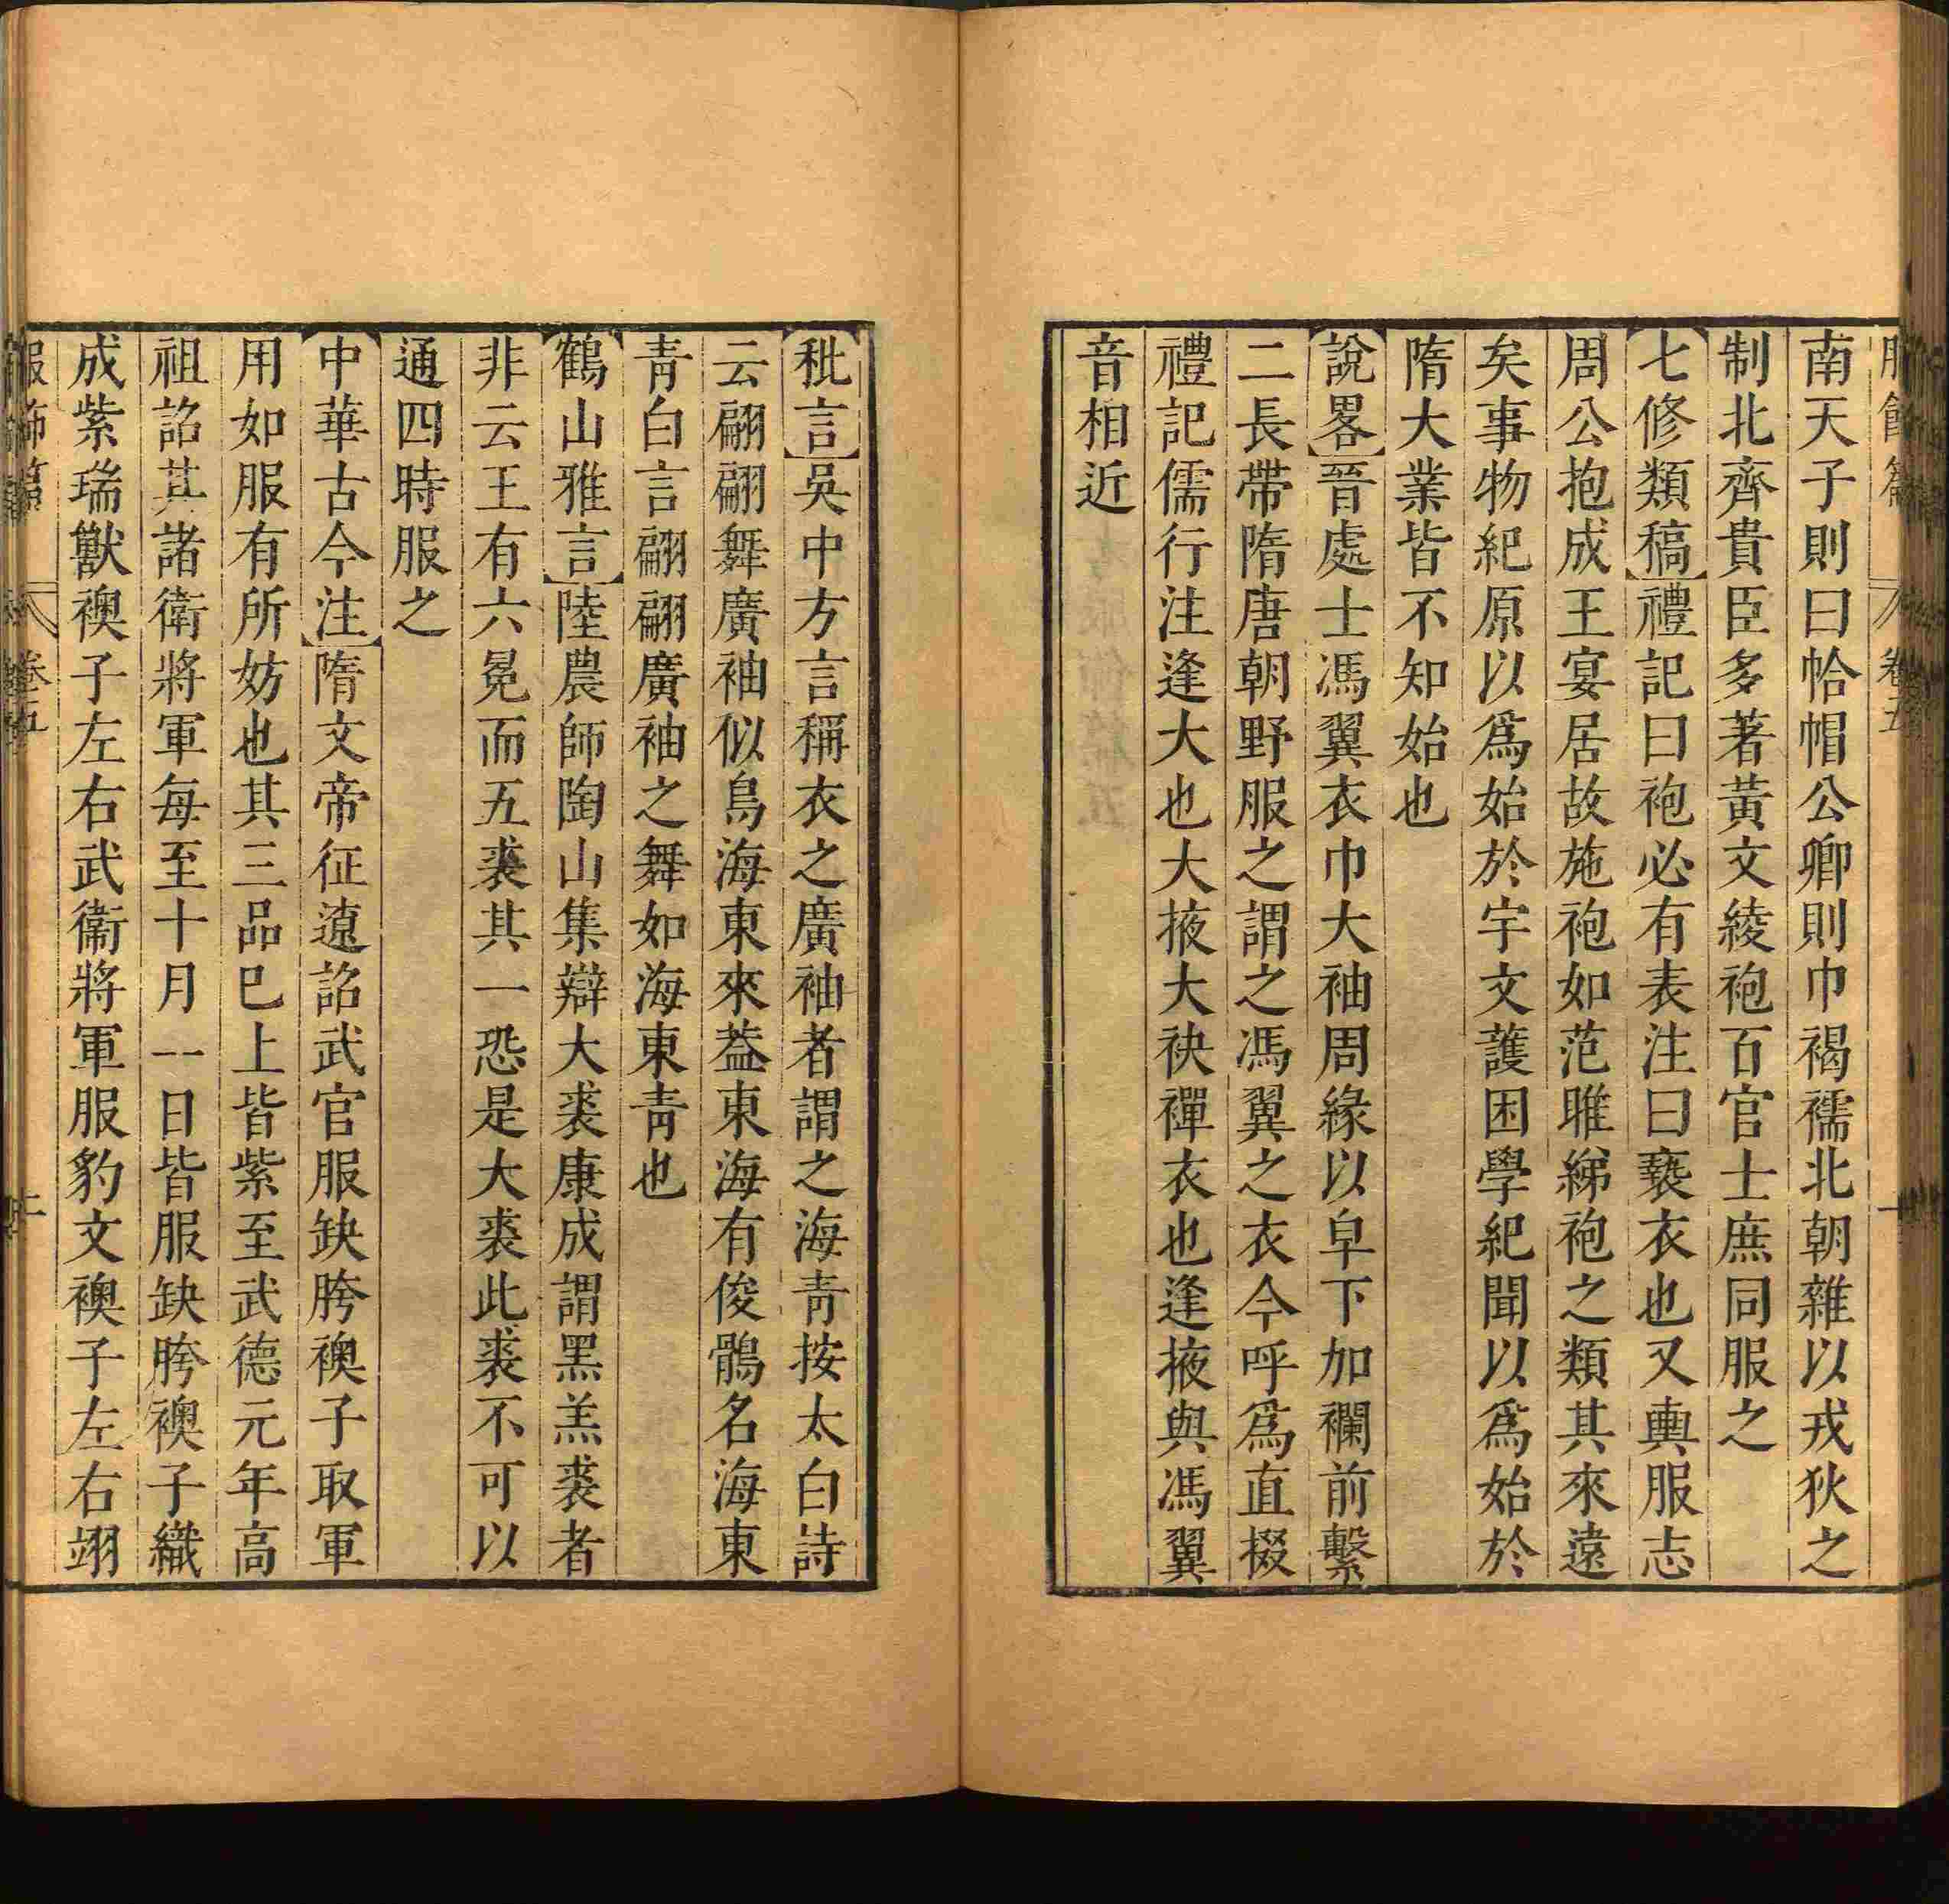 南天子則曰帢帽公卿則巾褐襦北朝雜以戎狄之
制北齊貴臣多著黃文綾袍百官士庶同服之
七修類稿禮記曰袍必有表注曰褻衣也又輿服志
周公抱成王宴居故施袍如范雎綈袍之類其來遠
矣事物紀原以爲始於宇文護困學紀聞以爲始於
隋大業皆不知始也
說畧晉處士馮翼衣巾大袖周緣以皁下加襴前繫
二長帶隋唐朝野服之謂之馮翼之衣今呼爲直掇
禮記儒行注逢大也大掖大袂襌衣也逢掖與馮翼
音相近
秕言吳中方言稱衣之廣袖者謂之海青按太白詩
云翩翩舞廣袖似鳥海東來葢東海有俊鶻名海東
青白言翩翩廣袖之舞如海東青也
鶴山雅言陸農師陶山集辯大裘康成謂黑羔裘者
非云王有六冕而五裘其一恐是大裘此裘不可以
通四時服之
中華古今注隋文帝征遼詔武官服缺胯襖子取軍
用如服有所妨也其三品巳上皆紫至武德元年高
祖詔其諸衛將軍每至十月一日皆服缺胯襖子織
成紫瑞獸襖子左右武衞將軍服豹文襖子左右翊
服飾篇 卷五